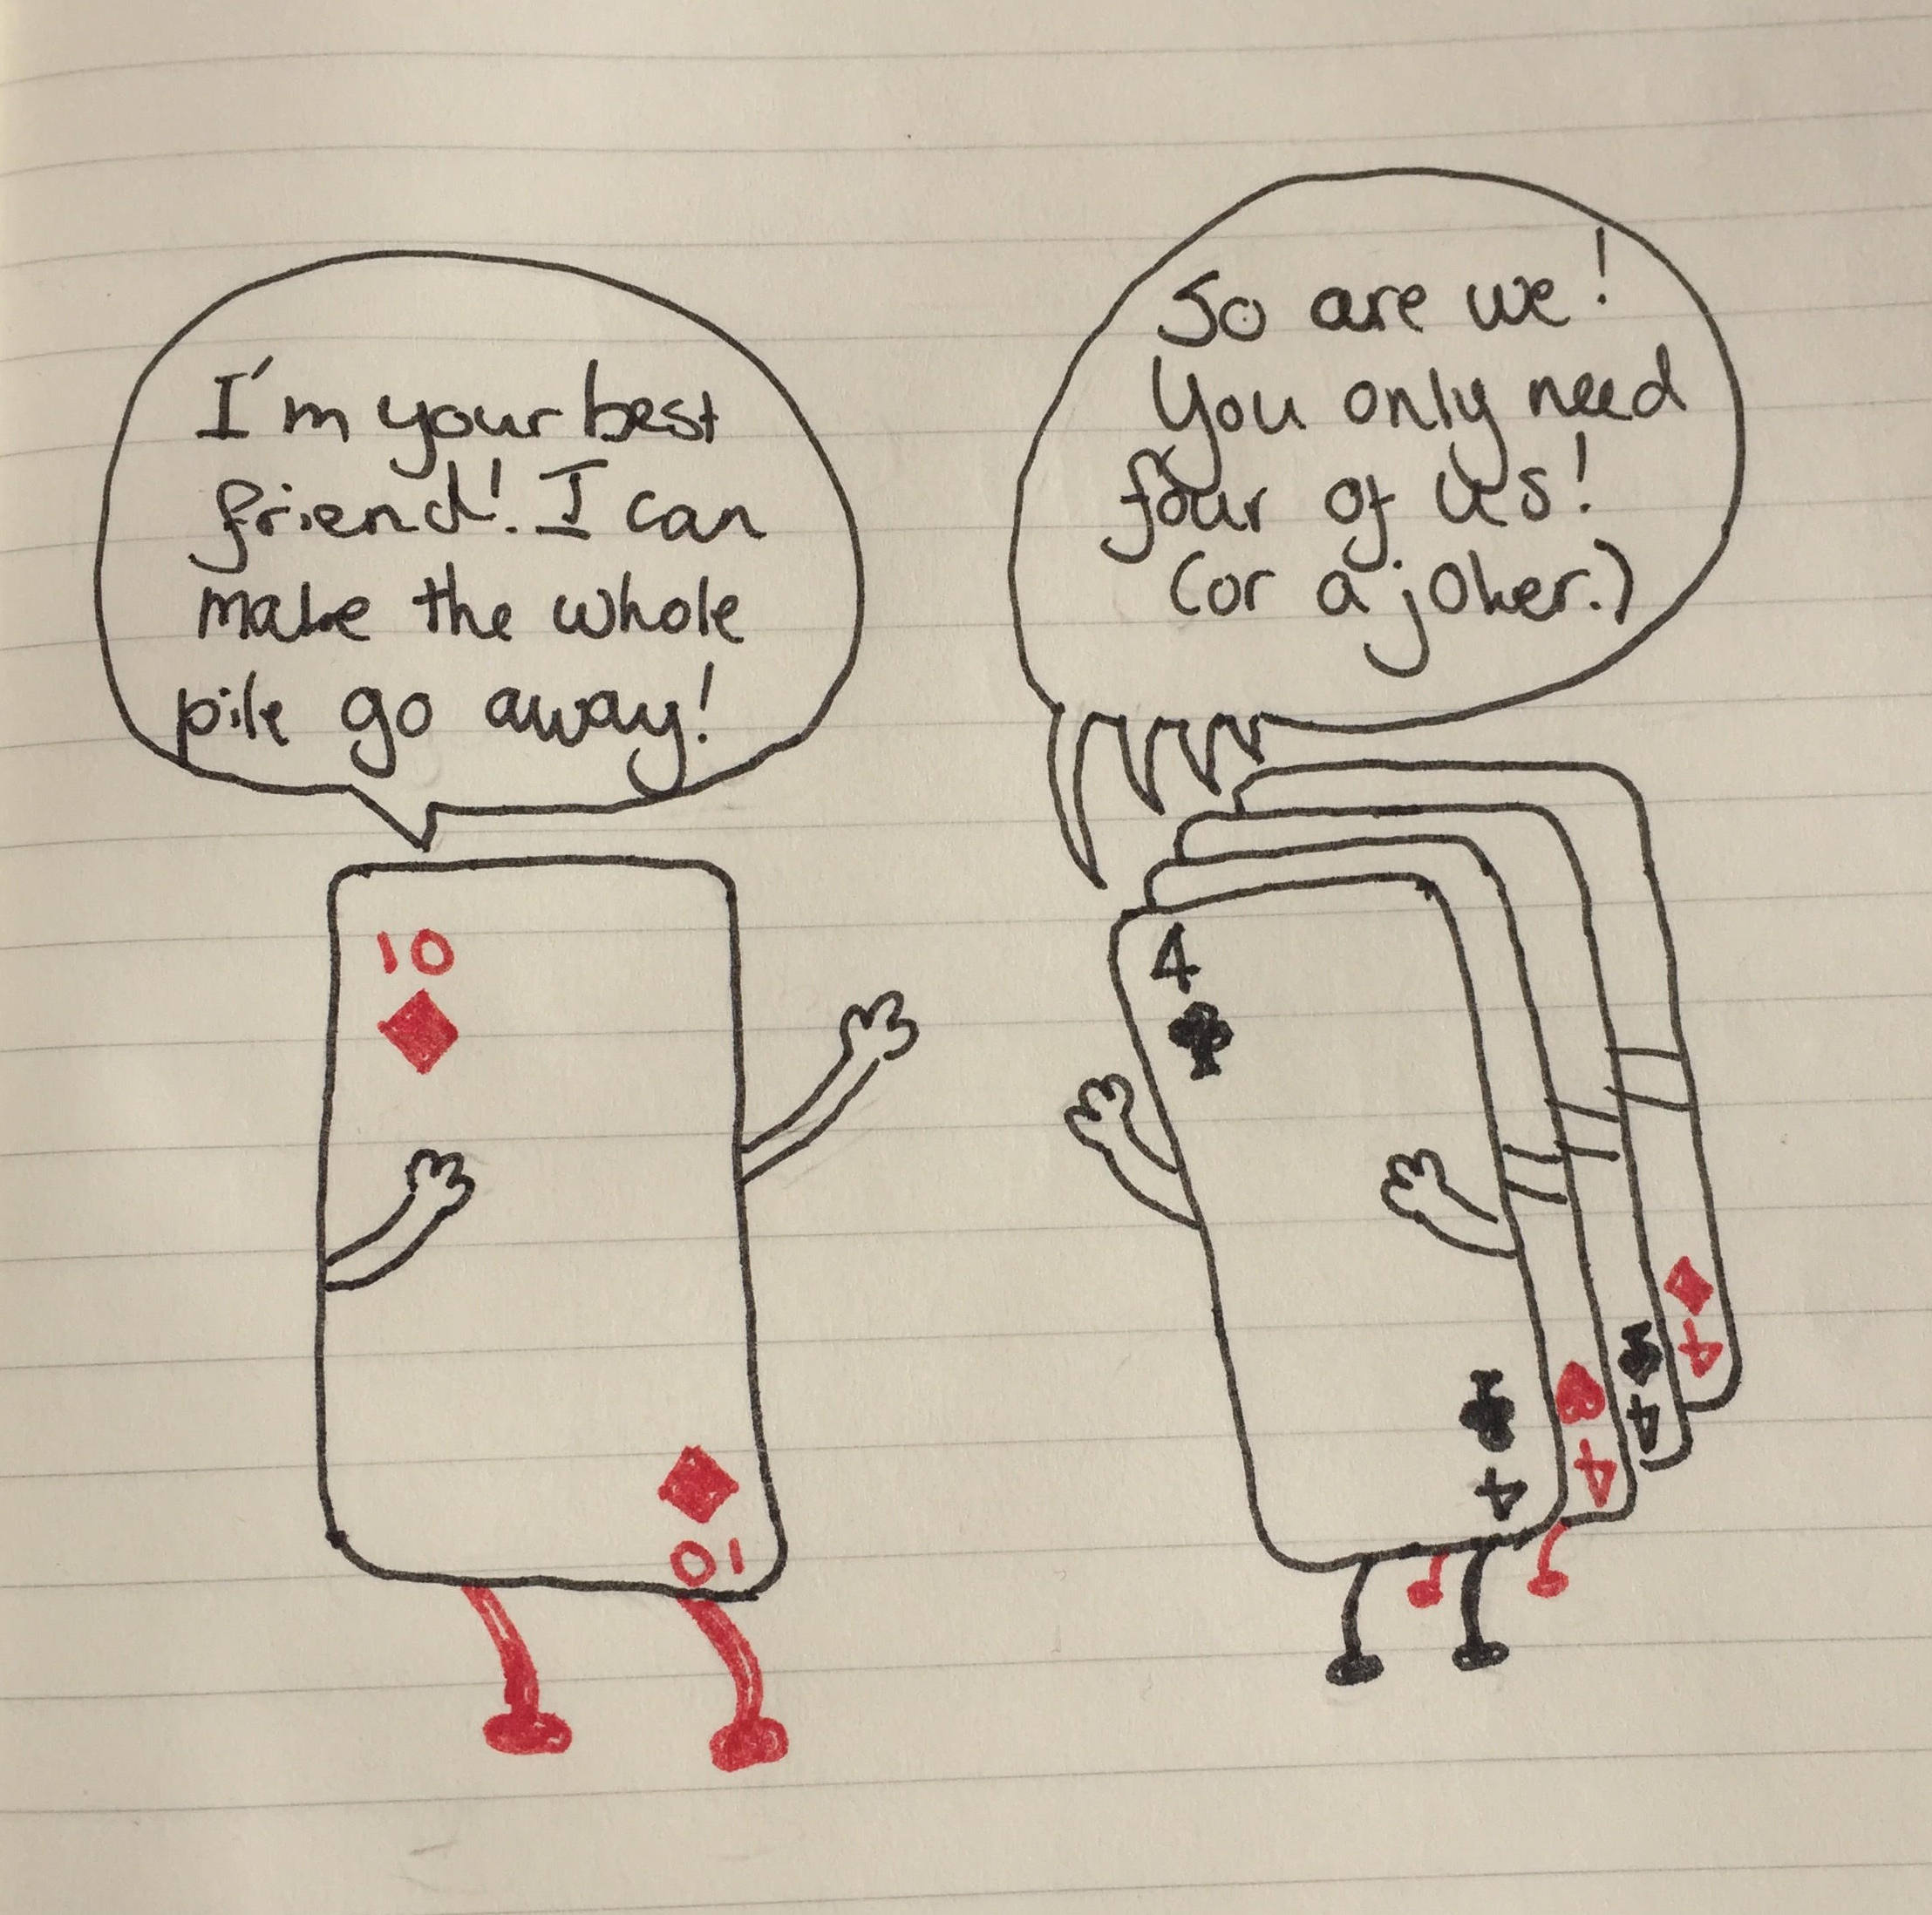 I'm your best
friend! I can
make the whole
pile go away!
So are we!
You only need
four of us!
(or a joker.)
10
10
4
4
4
4
4